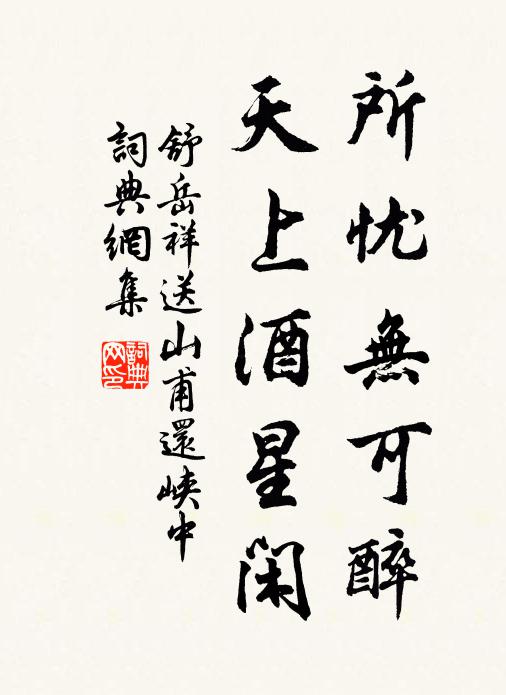 所忧無可醉
天上酒星闲
舒岳祥送山甫還峽中
詞典網集
詞典
网印